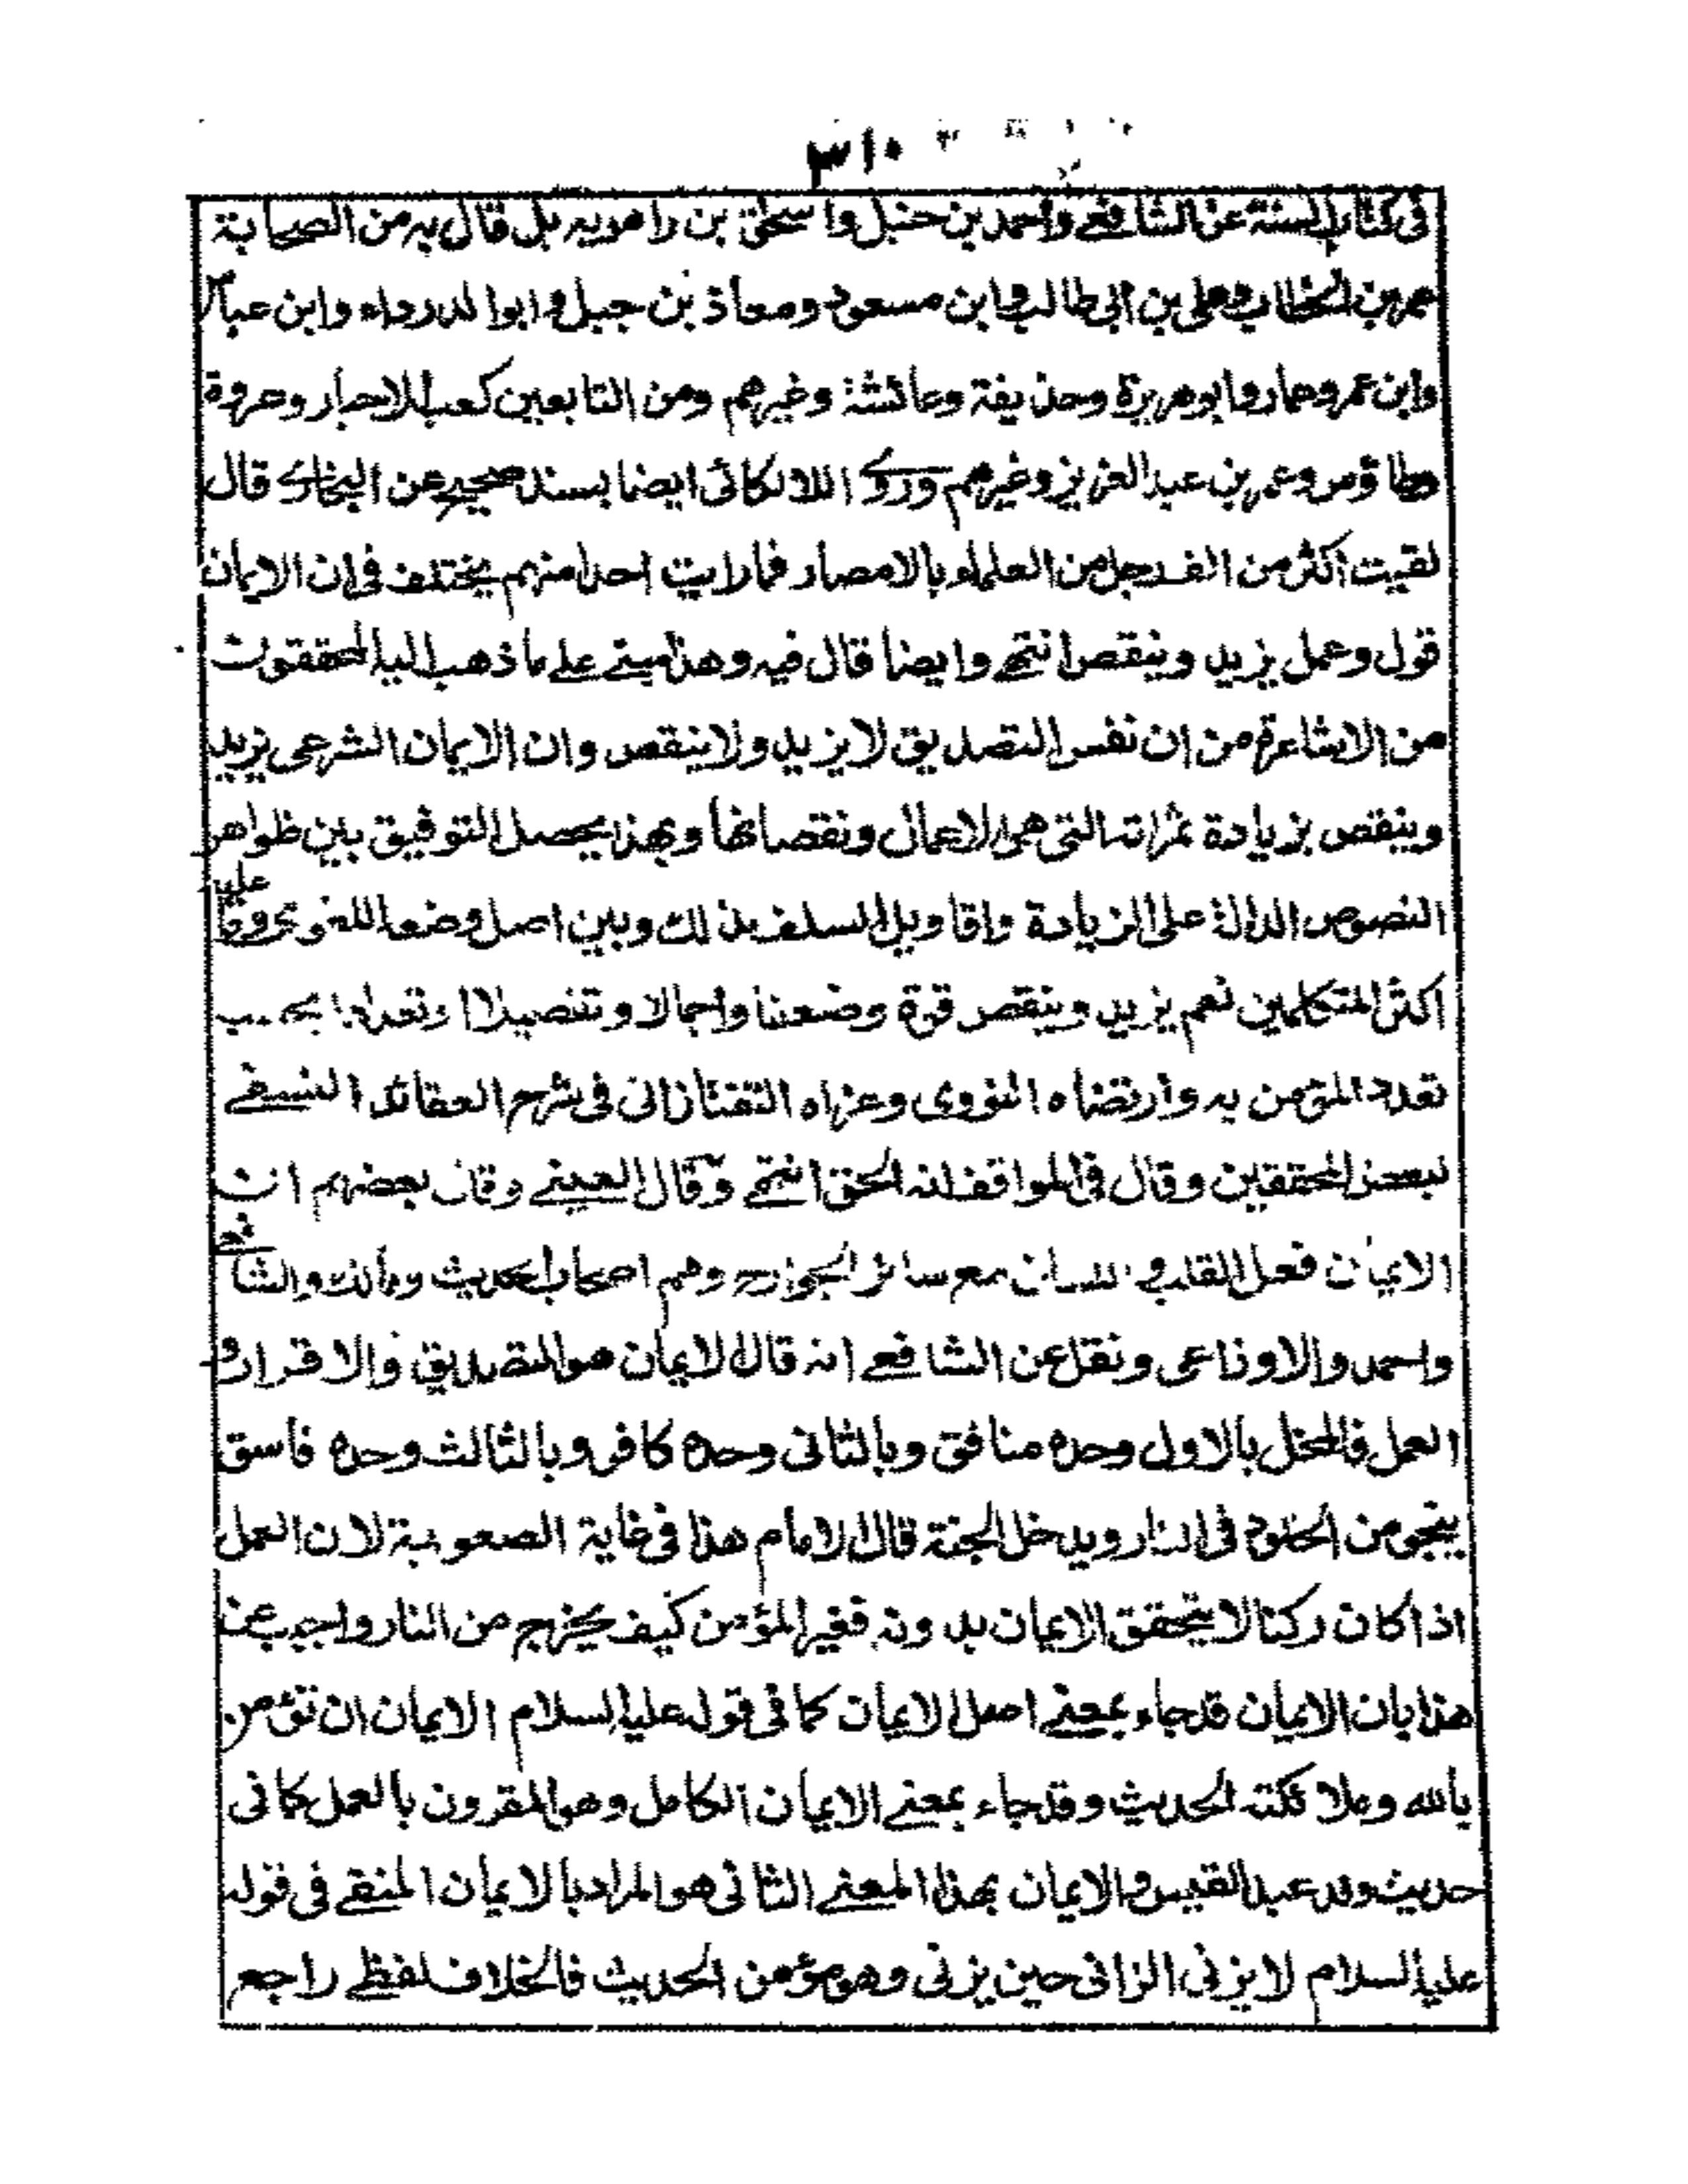 ٣١٠
في كتاب السنة عن الشافعي واحمد بن حنبل واسحق بن راهويه بل قال به من الصحابة
عمر بن الخطاب وعلى بن ابي طالب وابن مسعود ومعاذ بن جبل وابوا لدرداء وابن عباس
وابن عمر وعمار وابو هريرة وحذيفة وعائشة وغيرهم ومن التابعين كعب الاحبار وعروة
وطاؤس وعمر بن عبد العزيز وغيرهم وروى اللالكائى ايضا بسند صحيح عن البخارى قال
لقيت اكثر من الف رجل من العلماء بالامصار فما رايت احدا منهم يختلف في ان الايمان
قول وعمل يزيد وينقص انتهى وايضا قال فيه وهذا مبنى على ما ذهب اليه المحققون
من الاشاعرة من ان نفس التصديق لا يزيد ولا ينقص وان الايمان الشرعى يزيد
وينقص بزيادة ثمراته التى هى الاعمال ونقصانها وبهذا يحصل التوفيق بين ظواهر
النصوص الدالة على الزيادة واقاويل السلف بذلك وبين اصل وضعه اللغوى وما عليه
اكثر المتكلمين نعم يزيد وينقص قوة وضعفا واجمالا وتفصيلا وتعددا بحسب
تعدد المؤمن به وارتضاه النووى وعزاه التفتازانى فى شرح العقائد النسفى
لبعض المحققين وقال فى المواقف انه الحق انتهى وقال العينى وقال بعضهم ان
الايمان فعل القلب واللسان مع سائر الجوارح وهم اصحاب الحديث ومالك والشافعى
واحمد والاوزاعى ونقل عن الشافعى انه قال الايمان هو التصديق والاقرار و
العمل فالمخل بالاول وحده منافق وبالثانى وحده كافر وبالثالث وحده فاسق
ينجو من الخلود فى النار ويدخل الجنة قال الامام هذا فى غاية الصعوبة لان العمل
اذا كان ركنا لا يتحقق الايمان بدونه فغير المؤمن كيف يخرج من النار واجيب عن
هذا بان الايمان قد جاء بمعنى اصل الايمان كما فى قوله عليه السلام الايمان ان تؤمن
بالله وملائكته الحديث وقد جاء بمعنى الايمان الكامل وهو المقرون بالعمل كما فى
حديث وفد عبد القيس والايمان بهذا المعنى الثانى هو المراد بالايمان المنفى فى قوله
عليه السلام لا يزنى الزانى حين يزنى وهو مؤمن الحديث فالخلاف لفظى راجع